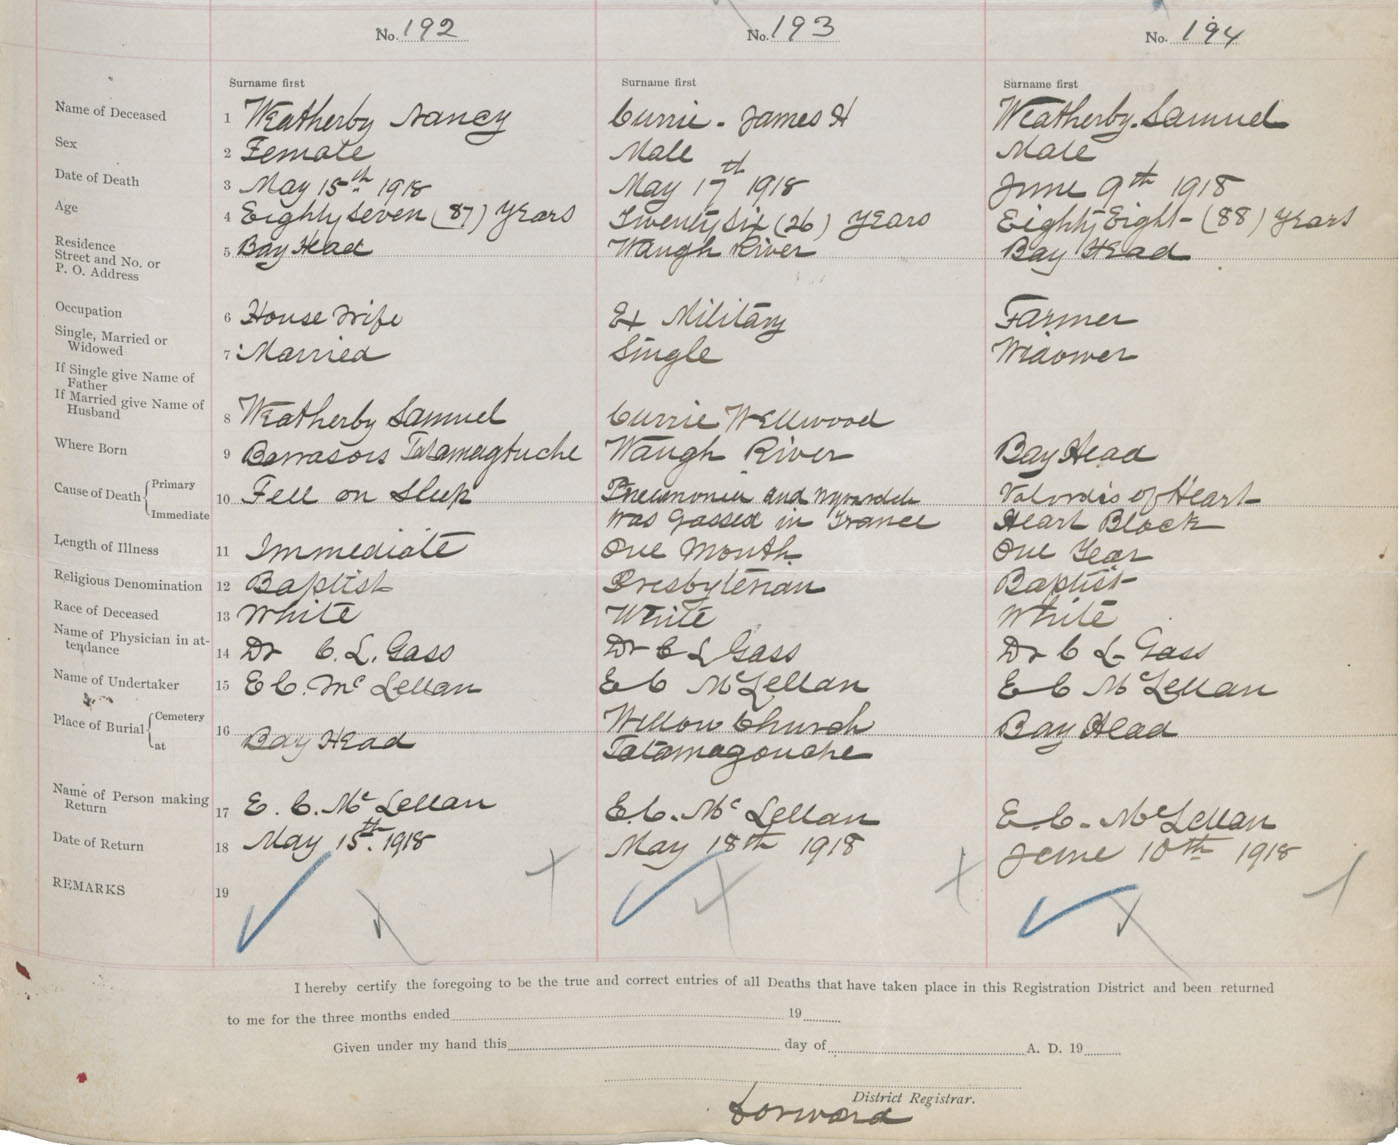 No. 192 No. 193 No. 194
Surname first Surname first Surname first
Name of Deceased 1 Weatherby Nancy Currie - James H Weatherby. Samuel
Sex 2 Female Male Male
Date of Death 3 May 15th 1918 May 17th 1918 June 9th 1918
Age 4 Eighty Seven (87) Years Twenty Six (26) Years Eighty Eight - (88) Years
Residence
Street and No. or 5 Bay Head Waugh River Bay Head
P. O. Address
Occupation 6 House Wife Ex Military Farmer
Single, Married or
Widowed 7 Married Single Widower
If Single give Name of
Father
If Married give Name of
Husband 8 Weatherby Samuel Currie Wellwood
Where Born 9 Barrasois Tatamagtuche Waugh River Bay Head
Cause of Death { Primary 10 Fell on Sleep Pneumonia and of Heart
Immediate Was Gassed in France Heart Block
Length of Illness 11 Immediate One Month One Year
Religious Denomination 12 Baptist Presbyterian Baptist
Race of Deceased 13 White White White
Name of Physician in at-
tendance 14 Dr C. L. Gass Dr C L Gass Dr C L Gass
Name of Undertaker 15 E C. Mc Lellan E C McLellan E C McLellan
Place of Burial { Cemetery 16 Willow Church Bay Head
at Bay Head Tatamagouche
Name of Person making
Return 17 E. C. Mc Lellan E. C. Mc Lellan E. C. McLellan
Date of Return 18 May 15th. 1918 May 18th 1918 June 10th 1918
REMARKS 19
I hereby certify the foregoing to be the true and correct entries of all Deaths that have taken place in this Registration District and been returned
to me for the three months ended 19
Given under my hand this day of A. D. 19
District Registrar.
Forward